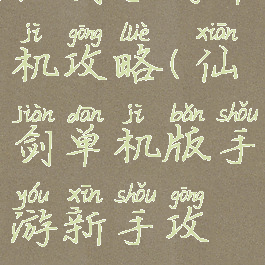 jī gōng lüè xiān
机攻略(仙
jiàn dān jī bǎn shǒu
剑单机版手
yóu xīn shǒu gōng
游新手攻